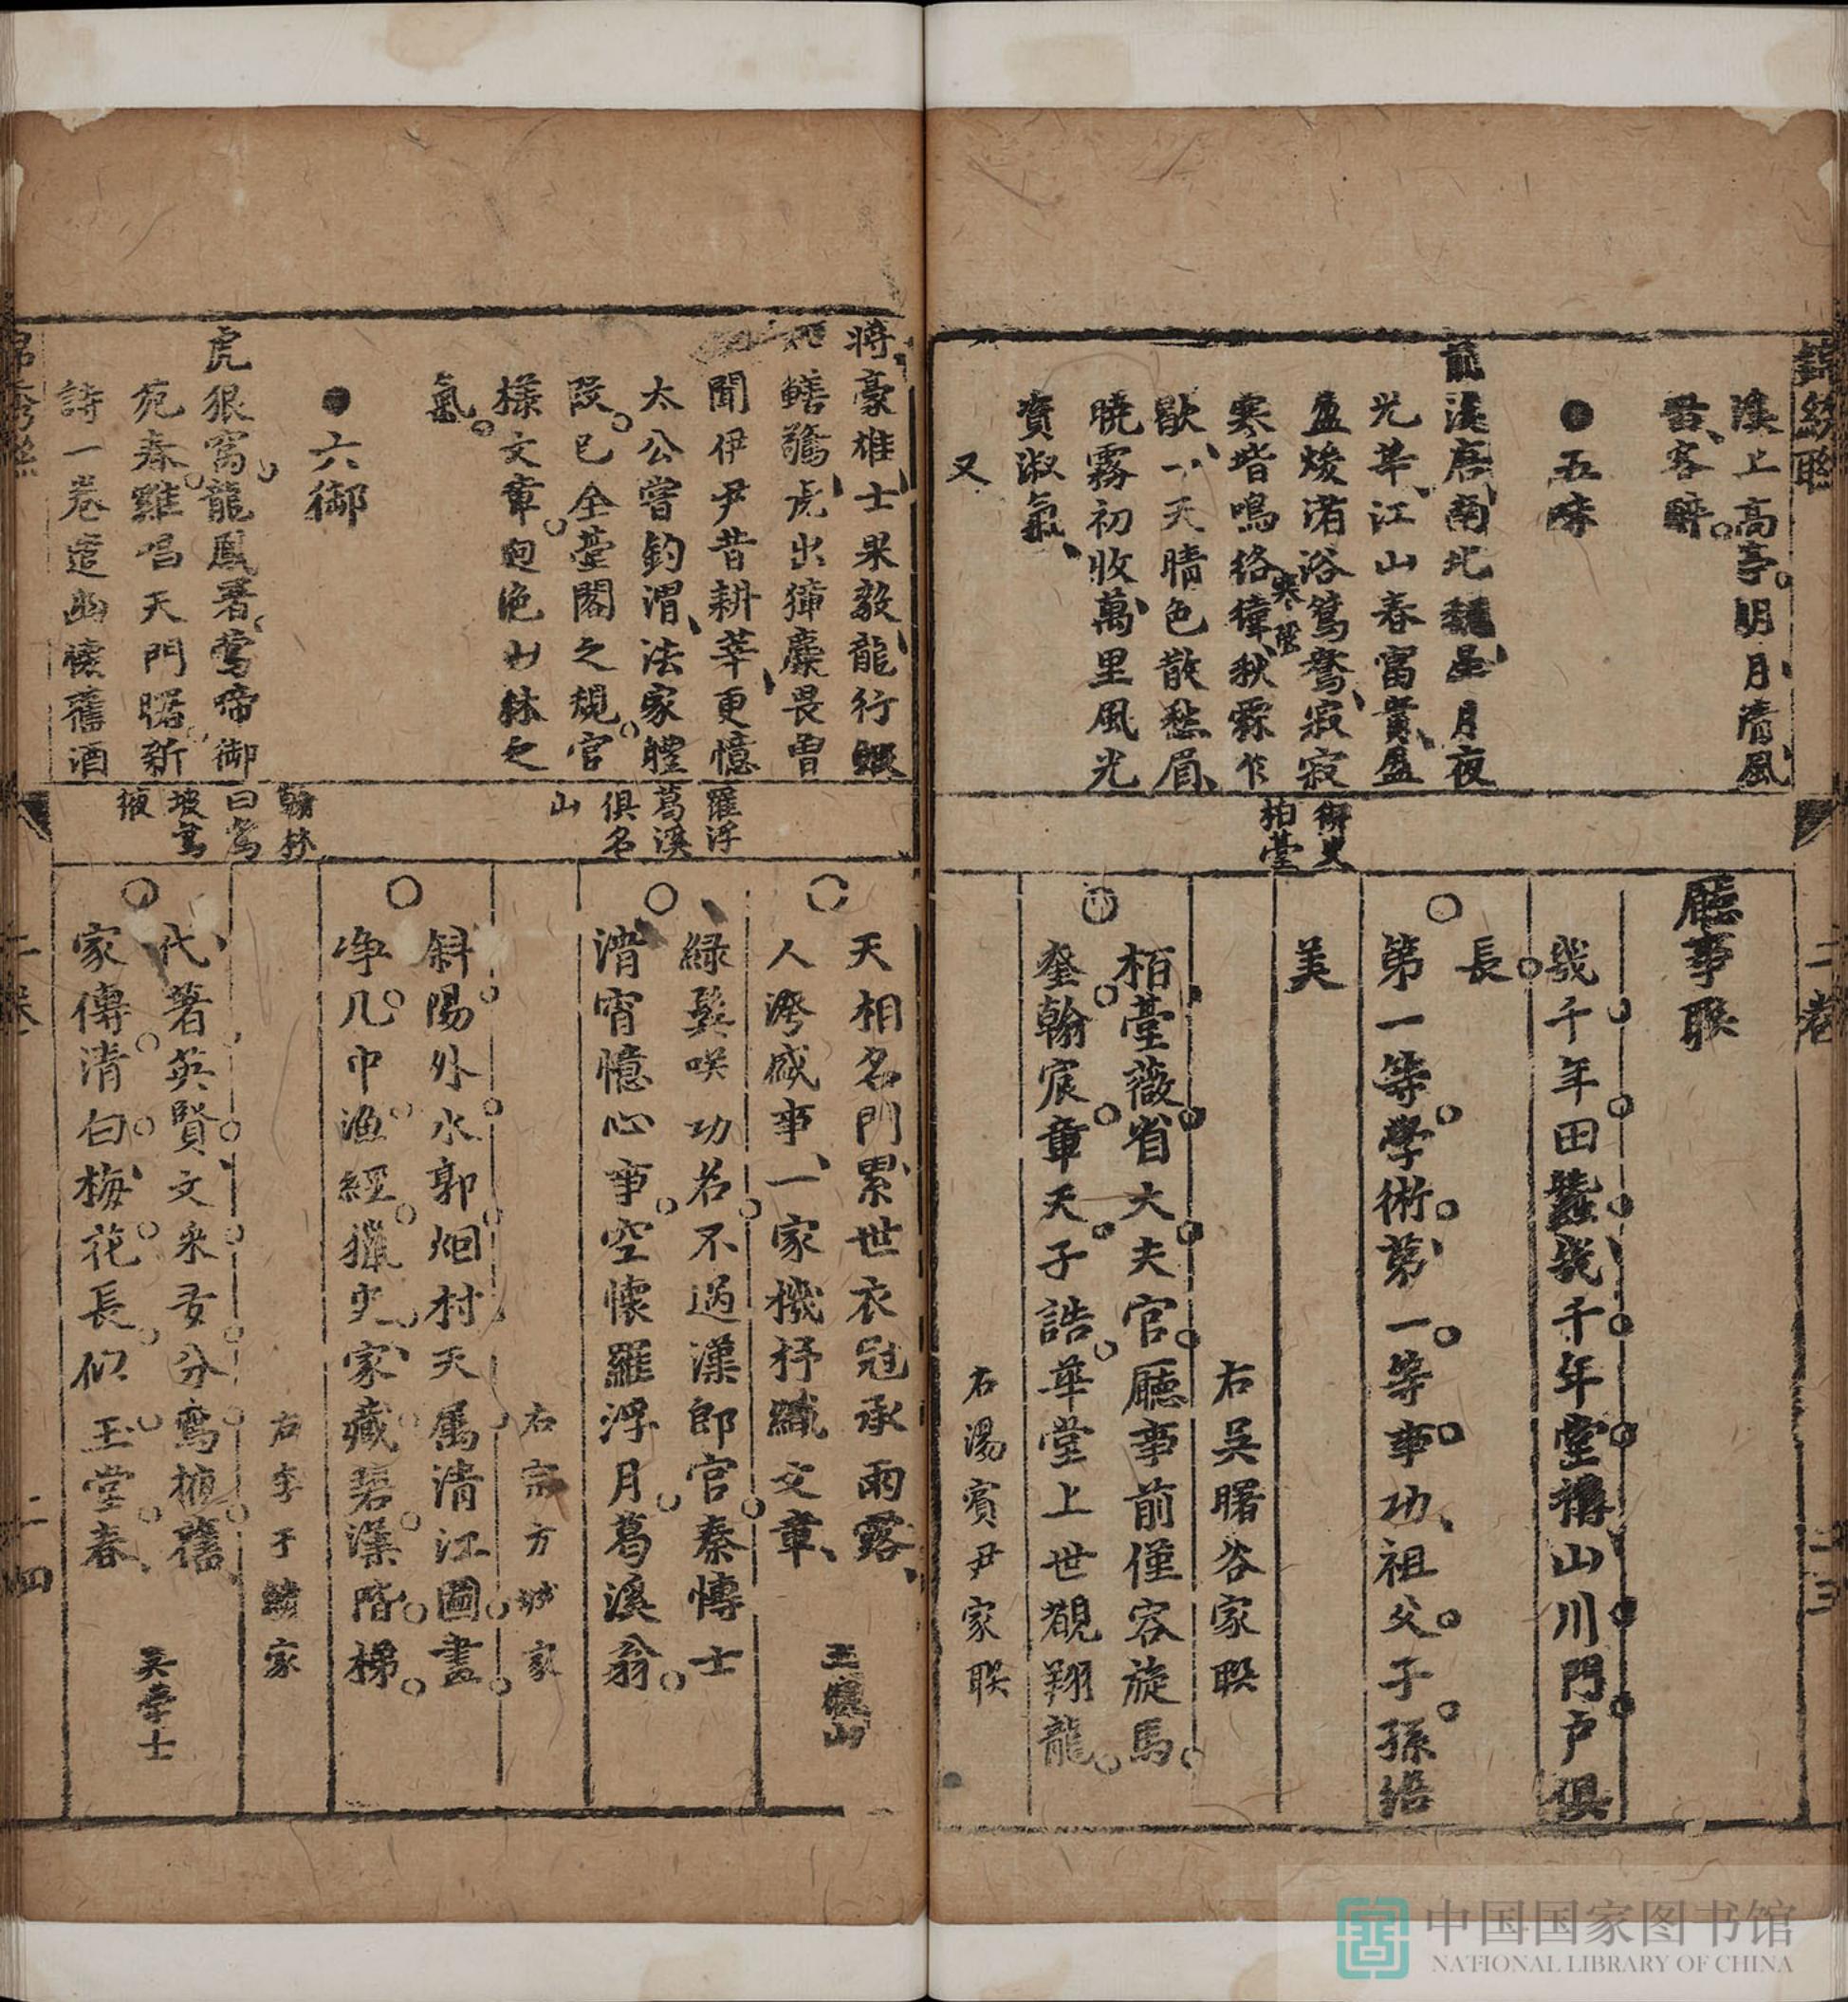 溪上高亭明月清風
苦、客醉。
●五味
龍溪唐南北魏晶月夜
光華江山春富貴盈
盈煖渚浴鴛鴦寂寂
寒堦鳴絡緯秋霖作
寒螿
歇一天晴色散愁眉
曉霧初收萬里風光
賣淑氣
又
御史
柏臺
廳事聯
幾千年田蠶幾千年堂構山川門户俱
長
第一等學術第一等事功祖父子孫紹
美
右吳曙谷家聯
栢臺薇省大夫官廳事前僅容旋馬
奎翰宸章天子誥華堂上世覩翔龍
右湯賓尹家聯
二卷
二三
將豪雄士果毅龍行蝦
鱔驚虎出獐麋畏曾
聞伊尹昔耕莘更憶
太公嘗釣渭法家體
段已全臺閣之規官
樣文章迥絶山林之
氣
●六御
虎狠窩龍鳳著鶯啼御
苑春雞唱天門曙新
詩一卷遣幽懷舊酒
羅浮
葛溪
俱名
山
翰林
曰鸞
坡鸞
掖
天相名門累世衣冠承雨露
人滂盛事一家機抒織文章
王鳳山
緑鬂咲功名不過漢郎官秦博士
清宵憶心事空懷羅浮月葛溪翁
右宗方城家
斜陽外水郭烟村天属清江圖畫
净几巾漁經獵史家藏碧漢階梯
右李于鱗家
代著英賢文采女分鸞掖舊
家傳清白梅花長似玉堂春
吴學士
二卷
二四
中国国家图书馆
NATIONAL LIBRARY OF CHINA